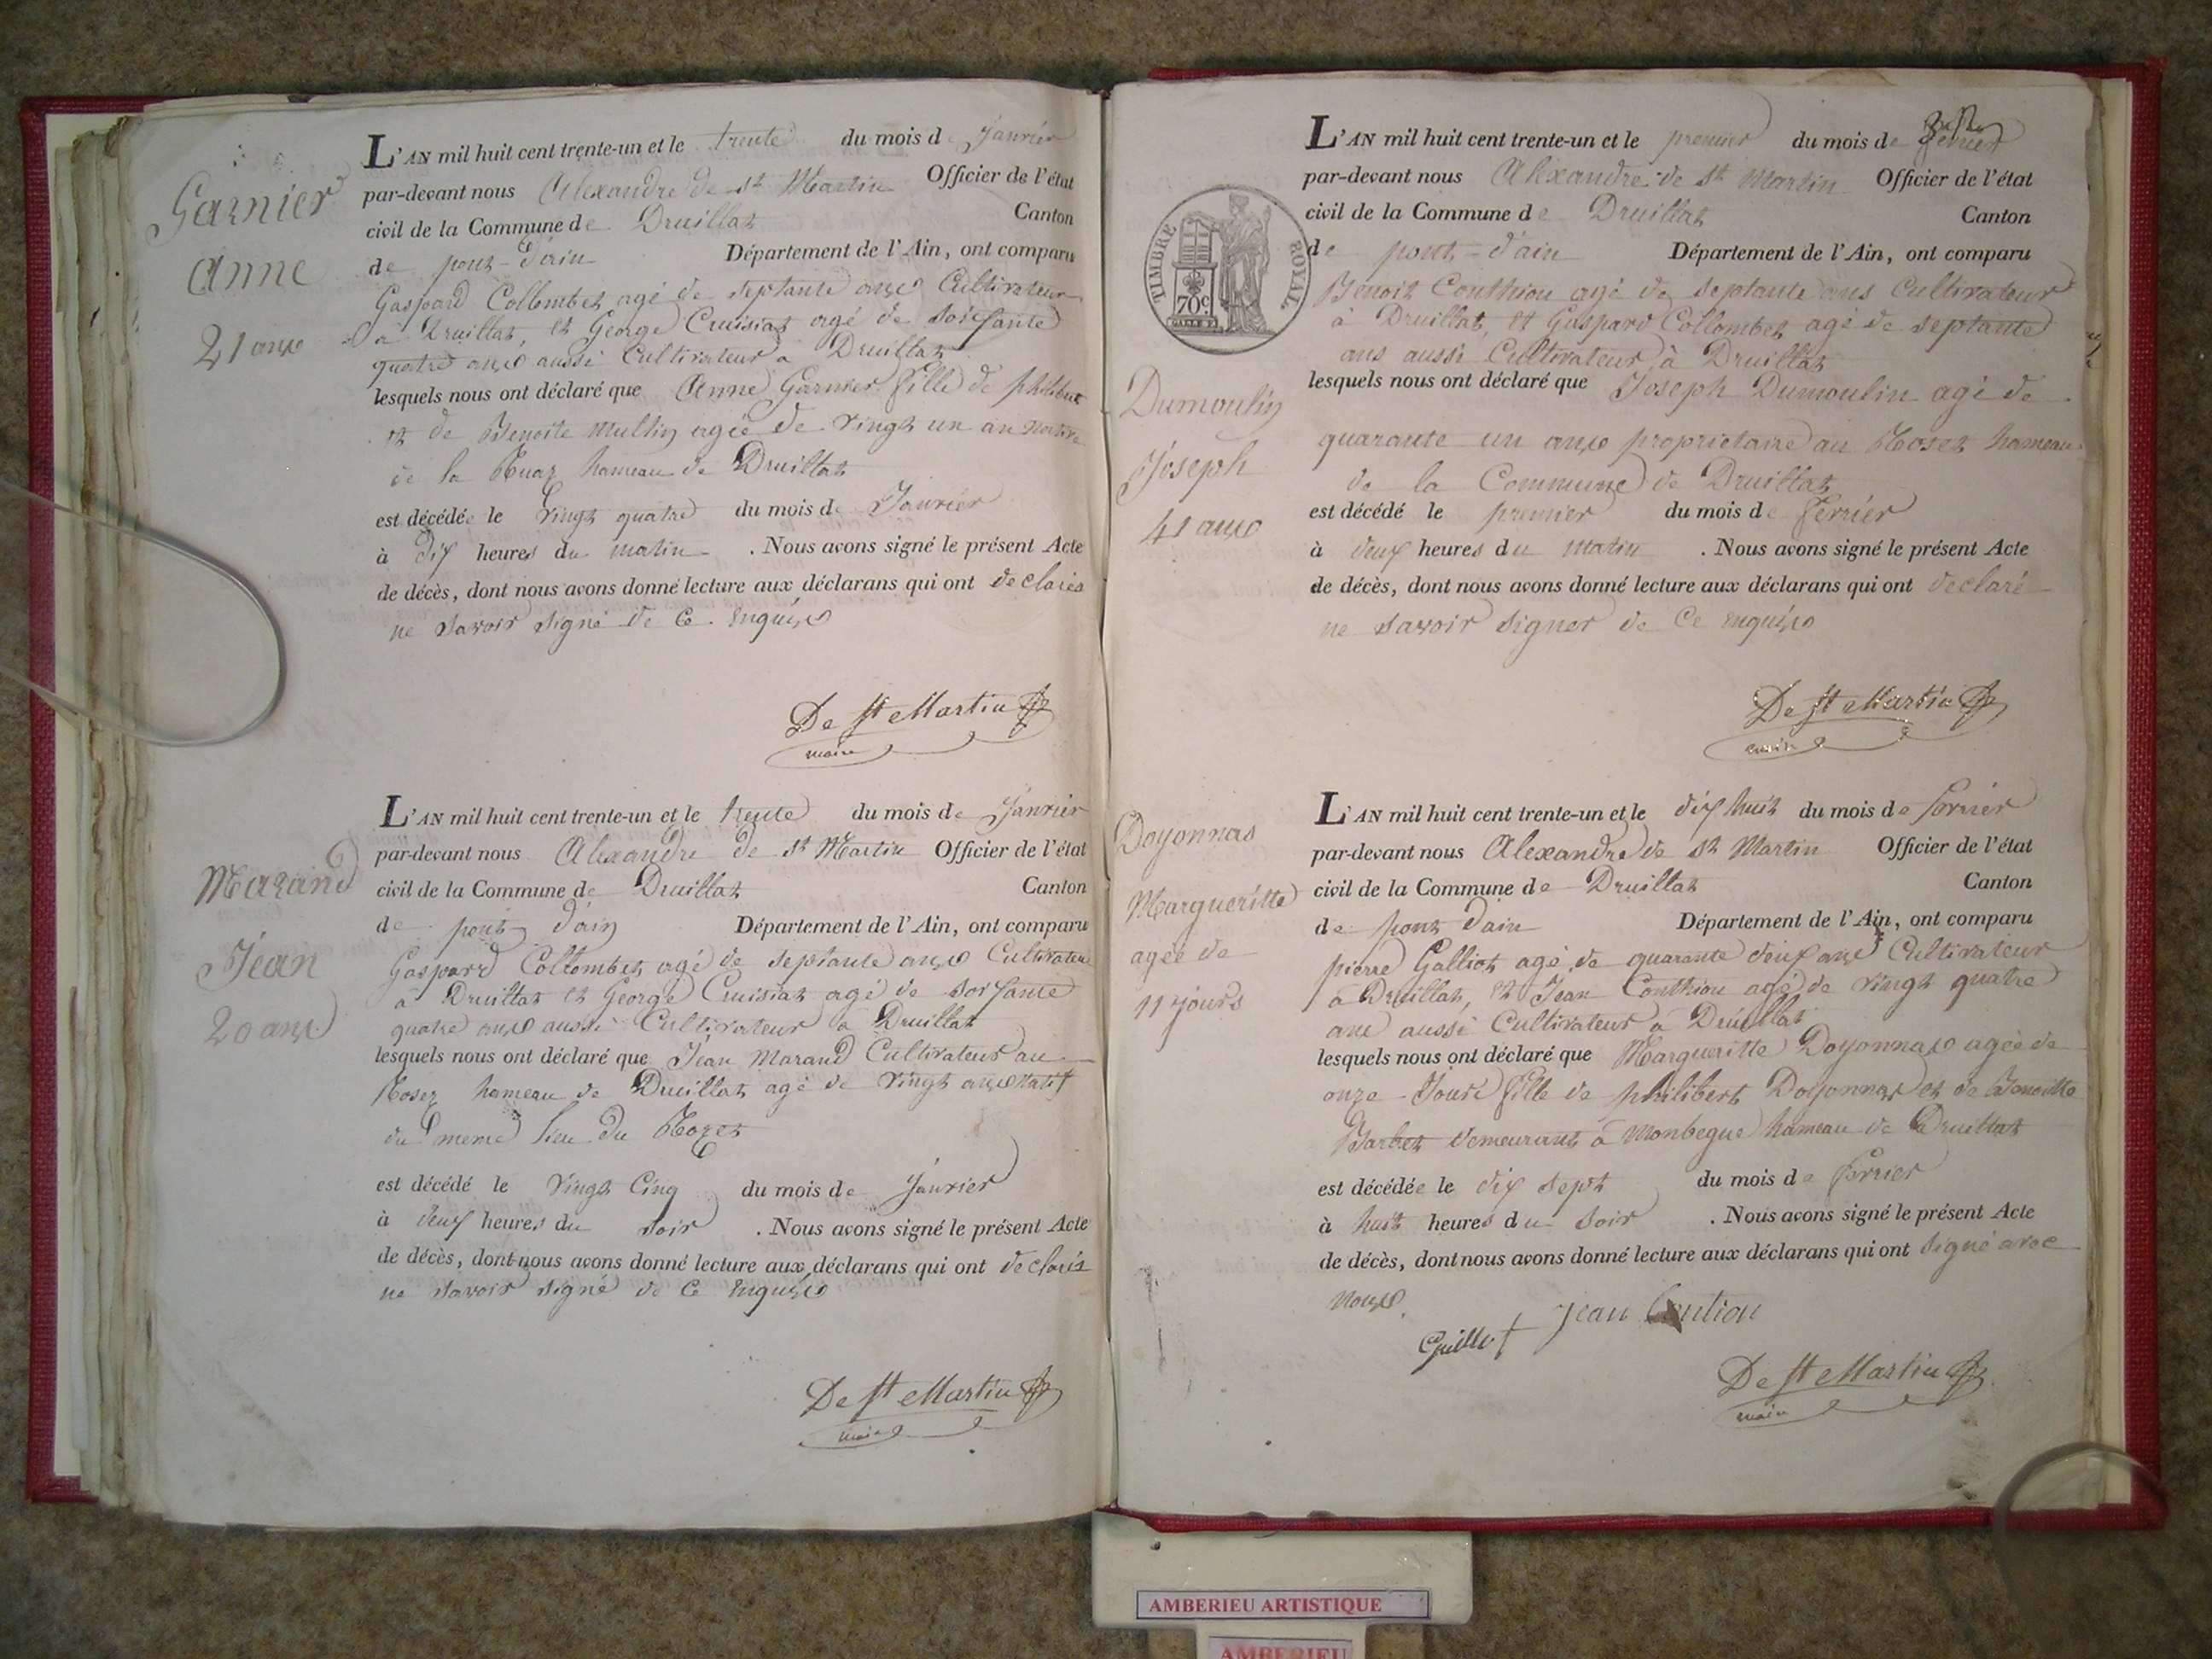 Garnier
Anne
21 ans
L'AN mil huit cent trente-un et le trente du mois de Janvier
par-devant nous Alexandre de st Martin Officier de l'état
civil de la Commune de Druillat Canton
de pont-d'ain Département de l'Ain, ont comparu
Gaspard Collombet agé de septante ans Cultivateur
a Druillat, et George Cruisiat agé de soissante
quatre ans aussi Cultivateur a Druillat
lesquels nous ont déclaré que Anne Garnier fille de philibert
et de Benoite Mullin agée de vingt un an native
de la Ruaz hameau de Druillat
est décédée le vingt quatre du mois de Janvier
à dix heures du matin . Nous avons signé le présent Acte
de décès, dont nous avons donné lecture aux déclarans qui ont declarés
ne savoir signé de ce enquis
De st Martin
maire
Marand
Jean
20 ans
L'AN mil huit cent trente-un et le trente du mois de Janvier
par-devant nous Alexandre de st Martin Officier de l'état
civil de la Commune de Druillat Canton
de pont d'ain Département de l'Ain, ont comparu
Gaspard Collombet agé de septante ans Cultivateur
a Druillat et George Cruisiat agé de soissante
quatre ans aussi Cultivateur a Druillat
lesquels nous ont déclaré que Jean Marand Cultivateur au
Rosez hameau de Druillat agé de vingt ans natif
du meme lieu du Rozet
est décédé le vingt Cinq du mois de Janvier
à deux heures du soir . Nous avons signé le présent Acte
de décès, dont nous avons donné lecture aux déclarans qui ont declarés
ne savoir signé de ce enquis
De st Martin
maire
L'AN mil huit cent trente-un et le premier du mois de fevrier
par-devant nous Alexandre de st Martin Officier de l'état
civil de la Commune de Druillat Canton
de pont-d'ain Département de l'Ain, ont comparu
TIMBRE ROYAL
70c.
Benoit Conthion agé de septante ans Cultivateur
à Druillat, et Gaspard Collombet agé de septante
ans aussi Cultivateur à Druillat
Dumoulin
Joseph
41 ans
lesquels nous ont déclaré que Joseph Dumoulin agé de
quarante un ans proprietaire au Rosez hameau
de la Commune de Druillat
est décédé le premier du mois de fevrier
à deux heures du Matin . Nous avons signé le présent Acte
de décès, dont nous avons donné lecture aux déclarans qui ont declaré
ne savoir signer de ce enquis
De st Martin
maire
Doyonnas
Margueritte
agée de
11 jours
L'AN mil huit cent trente-un et le dix huit du mois de fevrier
par-devant nous Alexandre de st Martin Officier de l'état
civil de la Commune de Druillat Canton
de pont d'ain Département de l'Ain, ont comparu
pierre Galliot agé de quarante deux ans Cultivateur
a Druillat, et Jean Conthion agé de vingt quatre
ans aussi Cultivateur a Druillat
lesquels nous ont déclaré que Margueritte Doyonnas agée de
onze Jours fille de philibert Doyonnas et de Benoitte
Barbet demeurant a Monbegue hameau de Druillat
est décédée le dix sept du mois de fevrier
à huit heures du soir . Nous avons signé le présent Acte
de décès, dont nous avons donné lecture aux déclarans qui ont signé avec
nous
jean Contion
De st Martin
maire
AMBERIEU ARTISTIQUE
AMBERIEU